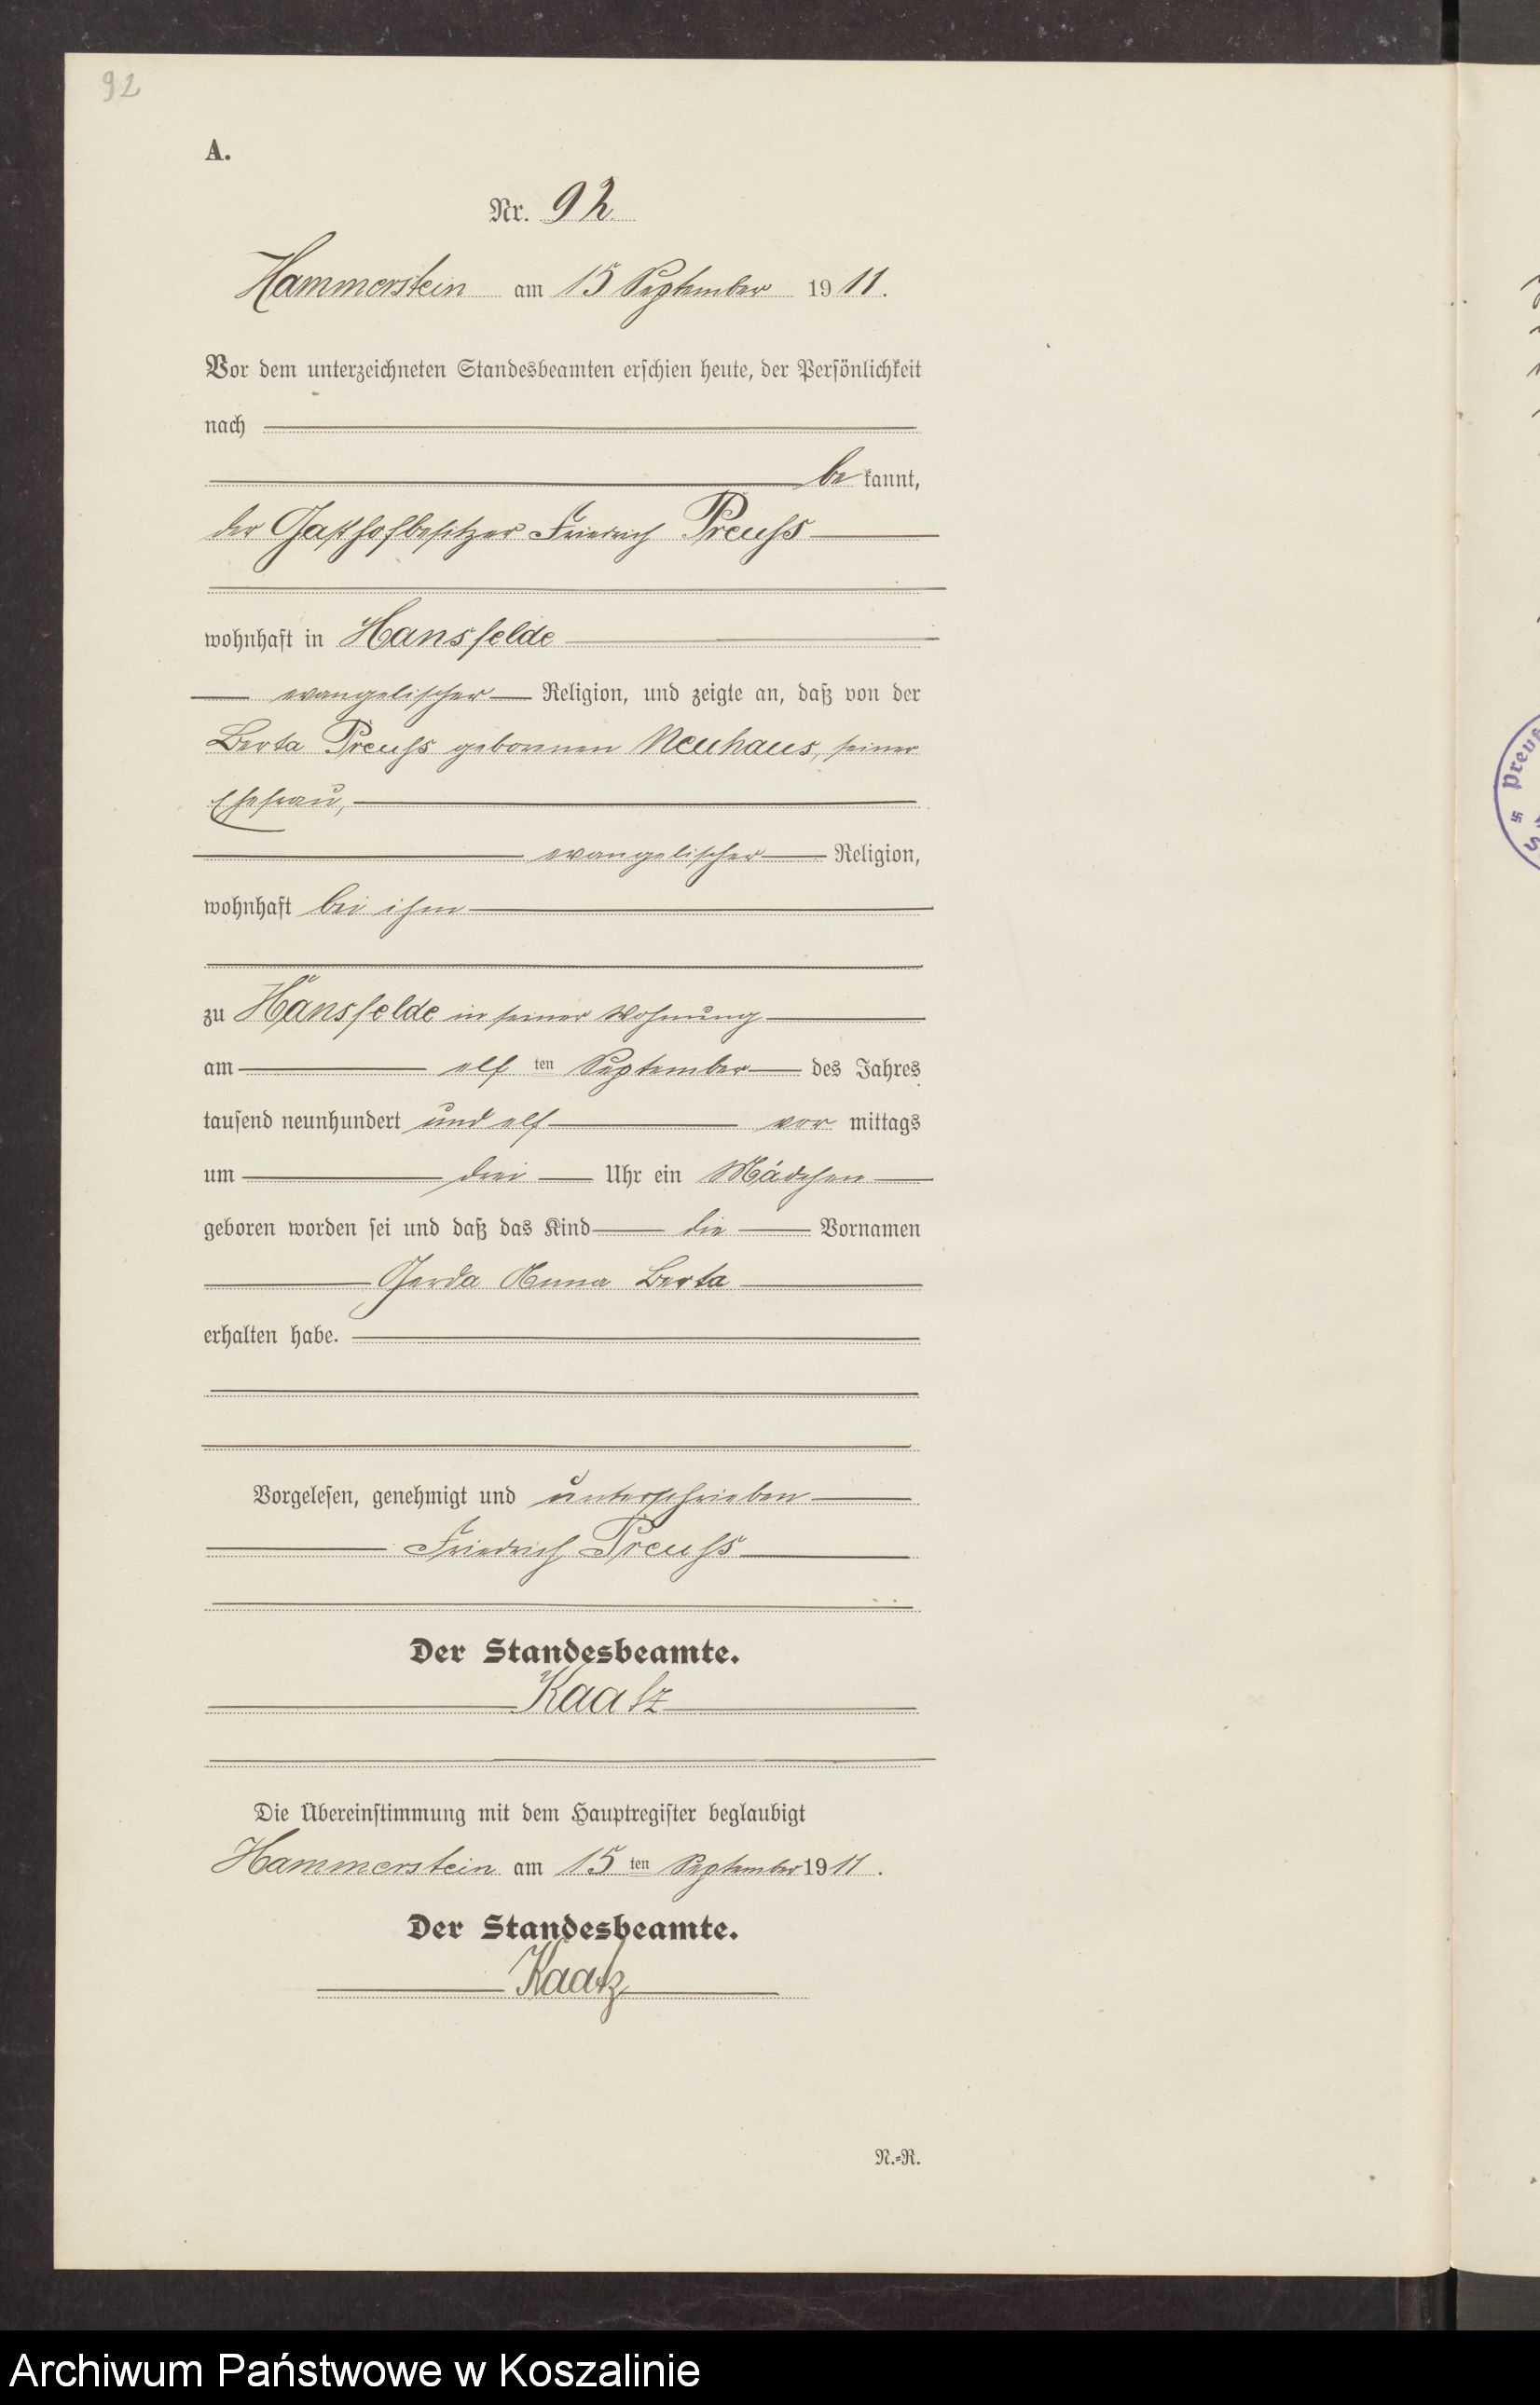 92
A.
Nr. 92
Hammerstein am 15 September 1911.
Vor dem unterzeichneten Standesbeamten erschien heute, der Persönlichkeit
nach
be kannt,
der Gasthofbesitzer Friedrich Preuss
wohnhaft in Hansfelde
evangelischer Religion, und zeigte an, daß von der
Berta Preuss geborenen Neuhaus, seiner
Ehefrau,
evangelischer Religion,
wohnhaft bei ihm
zu Hansfelde in seiner Wohnung
am elf ten September des Jahres
tausend neunhundert und elf vor mittags
um drei Uhr ein Mädchen
geboren worden sei und daß das Kind die Vornamen
Gerda Anna Berta
erhalten habe.
Vorgelesen, genehmigt und unterschrieben
Friedrich Preuss
Der Standesbeamte.
Kaatz
Die Übereinstimmung mit dem Hauptregister beglaubigt
Hammerstein am 15 ten September 1911.
Der Standesbeamte.
Kaatz
N.-R.
Archiwum Państwowe w Koszalinie